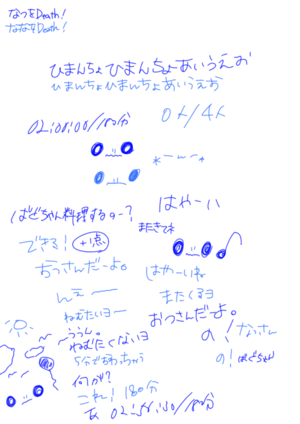 なつをDeath!
ななをDeath!
ひまんちょひまんちょあいうえお
ひまんちょひまんちょあいうえお
02:01:00/180分
0人/4人
はやーい
ばどちゃん料理するのー?
まだきてね
できる! +1点
おっさんだーよ。
はやーいね
んえーー
またくるヨ
ねむたいヨー
おっさんだーよ。
ううん。
ねむたくないヨ
の! なっさん
5分でおわっちゃう
の! ばどちゃん
何が?
これ! 180分